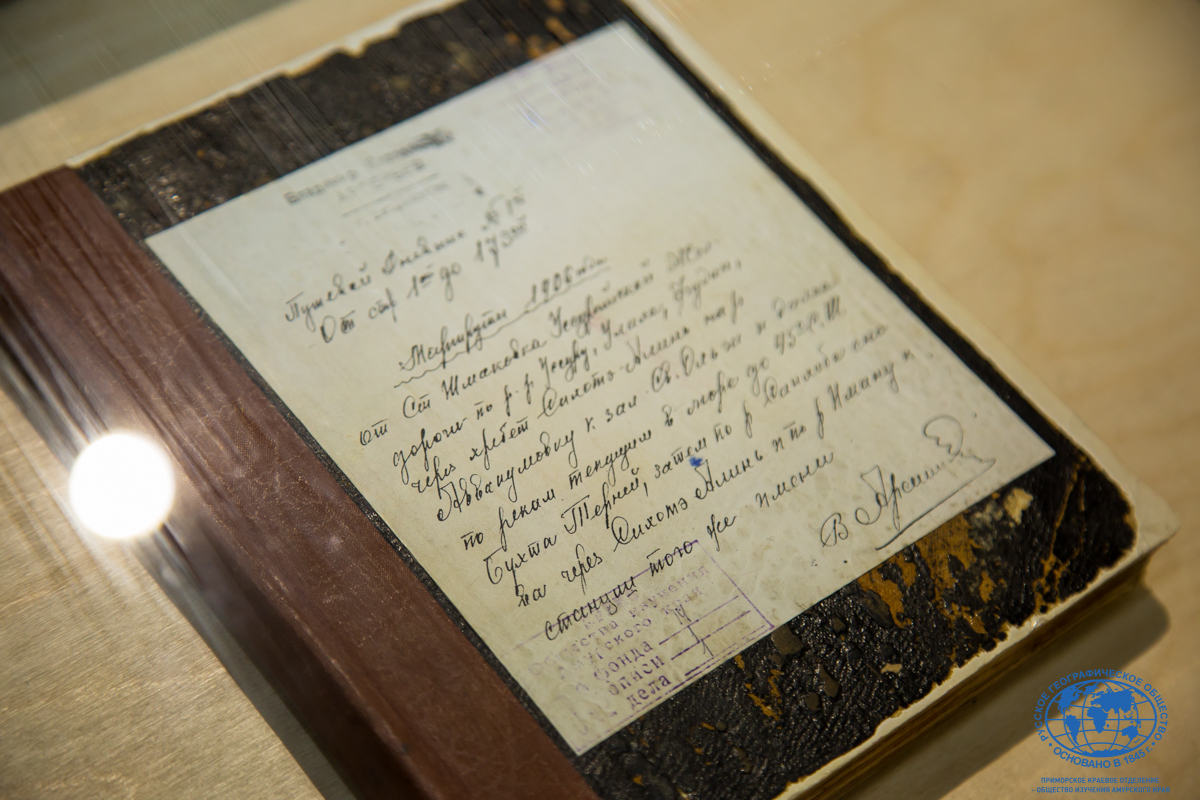 Владимир
Путевой Дневник № 1й
От стр 1ой до 173ей
Маршрутъ 1906 года
от Ст Шмаковка Уссурійской Жел
дороги по р. р Уссуру, Улахе, Фудзин,
через хребет Сихотэ-Алинь на р
Аввакумовку к зал. Св. Ольги и далее
по рекам текущим в море до 45° с. Ш
Бухта Терней, затем по р Санхобе сно
ва через Сихотэ Алинь и по р Иману к
станции того же имени
В Арсеньев
Общества изучения
Амурского края
№ фонда
описи 1
дела 1
РУССКОЕ ГЕОГРАФИЧЕСКОЕ ОБЩЕСТВО
• ОСНОВАНО В 1845 г. •
ПРИМОРСКОЕ КРАЕВОЕ ОТДЕЛЕНИЕ
- ОБЩЕСТВО ИЗУЧЕНИЯ АМУРСКОГО КРАЯ